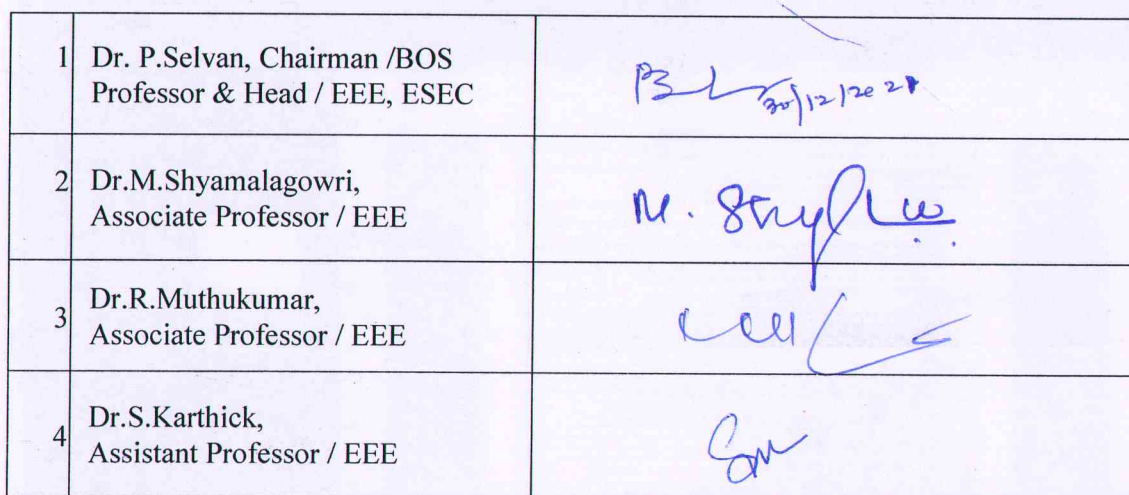 1 Dr. P.Selvan, Chairman /BOS
Professor & Head / EEE, ESEC
30/12/2021
2 Dr.M.Shyamalagowri,
Associate Professor / EEE
M.
3 Dr.R.Muthukumar,
Associate Professor / EEE
4 Dr.S.Karthick,
Assistant Professor / EEE